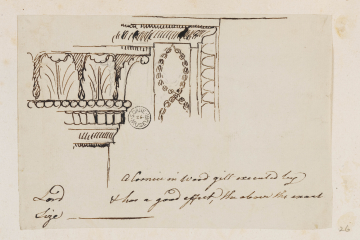 A Cornice in Wood gilt executed by
Lord & has a good effect, the above the exact
Size
26